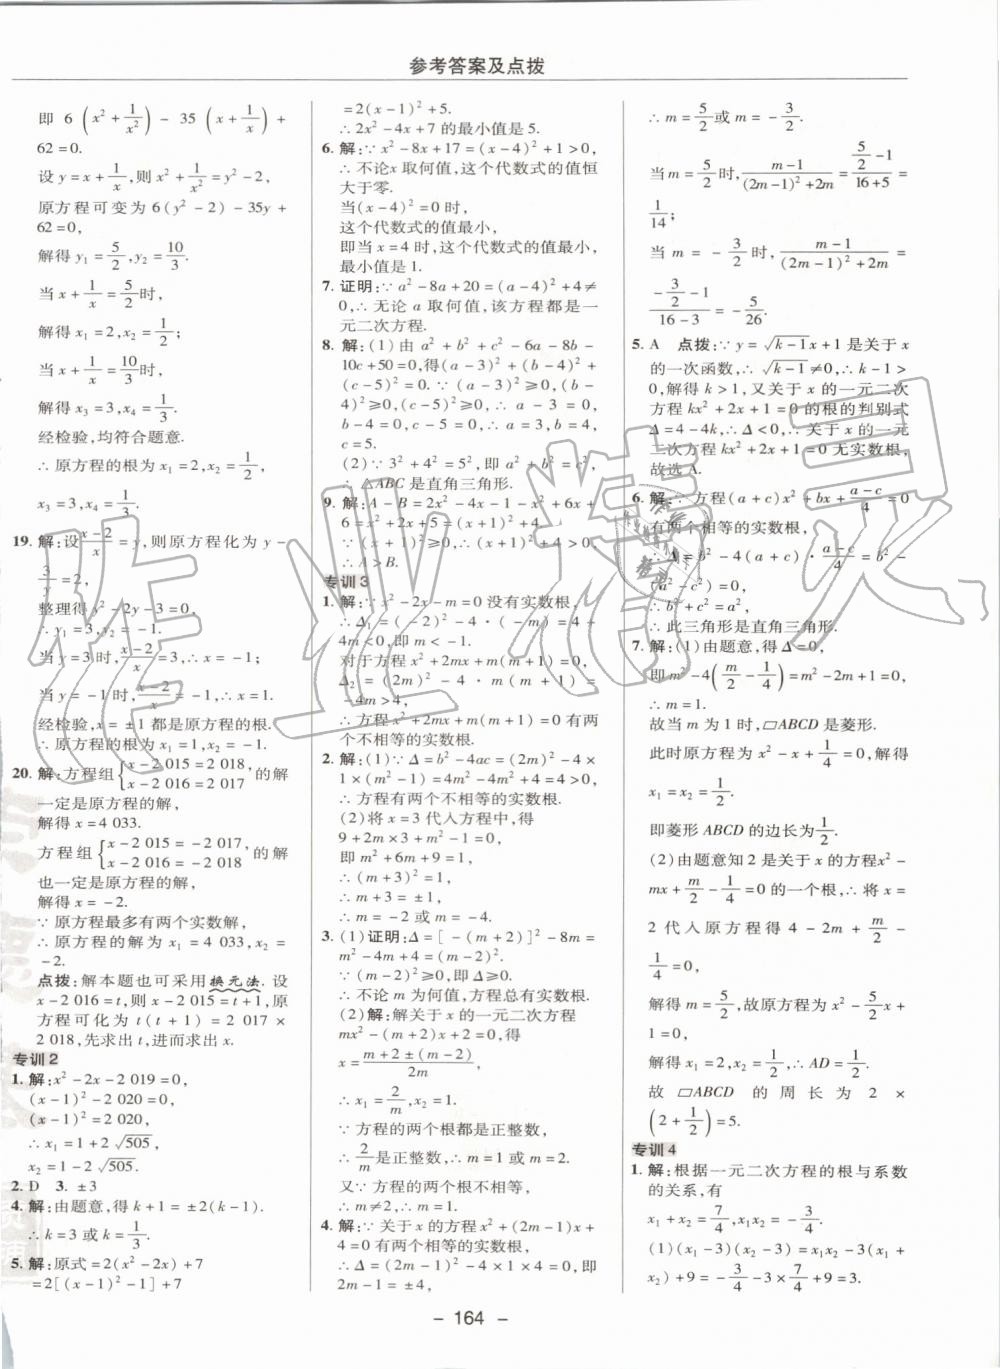 参考答案及点拨
即 6(x²+1/x²)-35(x+1/x)+
62=0.
设 y=x+1/x,则 x²+1/x²=y²-2,
原方程可变为 6(y²-2)-35y+
62=0,
解得 y₁=5/2,y₂=10/3.
当 x+1/x=5/2时,
解得 x₁=2,x₂=1/2;
当 x+1/x=10/3时,
解得 x₃=3,x₄=1/3.
经检验,均符合题意.
∴原方程的根为 x₁=2,x₂=1/2,
x₃=3,x₄=1/3.
19. 解:设(x-2)/x=y,则原方程化为 y-
3/y=2,
整理得 y²-2y-3=0,
∴y₁=3,y₂=-1.
当 y=3时,(x-2)/x=3,∴x=-1;
当 y=-1时,(x-2)/x=-1,∴x=1.
经检验,x=±1都是原方程的根.
∴原方程的根为 x=±1.
20. 解:方程组{x-2 015=2 018, x-2 016=2 017的解
一定是原方程的解,
解得 x=4 033.
方程组{x-2 015=-2 017, x-2 016=-2 018的解
也一定是原方程的解,
解得 x=-2.
∵原方程最多有两个实数解,
∴原方程的解为 x₁=4 033,x₂=
-2.
点拨:解本题也可采用换元法. 设
x-2 016=t,则 x-2 015=t+1,原
方程可化为 t(t+1)=2 017×
2 018,先求出 t,进而求出 x.
专训2
1. 解:x²-2x-2 019=0,
(x-1)²-2 020=0,
(x-1)²=2 020,
∴x₁=1+2√505,
x₂=1-2√505.
2. D 3. ±3
4. 解:由题意,得 k+1=±2(k-1).
∴k=3或 k=1/3.
5. 解:原式=2(x²-2x)+7
=2[(x-1)²-1]+7
=2(x-1)²+5.
∴2x²-4x+7的最小值是5.
6. 解:∵x²-8x+17=(x-4)²+1>0,
∴不论x取何值,这个代数式的值恒
大于零.
当(x-4)²=0时,
这个代数式的值最小,
即当 x=4时,这个代数式的值最小,
最小值是1.
7. 证明:∵a²-8a+20=(a-4)²+4≠
0,∴无论 a 取何值,该方程都是一
元二次方程.
8. 解:(1)由 a²+b²+c²-6a-8b-
10c+50=0,得(a-3)²+(b-4)²+
(c-5)²=0.∵(a-3)²≥0,(b-
4)²≥0,(c-5)²≥0,∴a-3=0,
b-4=0,c-5=0,∴a=3,b=4,
c=5.
(2)∵3²+4²=5²,即 a²+b²=c²,
∴△ABC是直角三角形.
9. 解:A-B=2x²-4x-1-x²+6x+
6=x²+2x+5=(x+1)²+4.
∵(x+1)²≥0,∴(x+1)²+4>0,
∴A>B.
专训3
1. 解:∵x²-2x-m=0没有实数根,
∴Δ₁=(-2)²-4·(-m)=4+
4m<0,即 m<-1.
对于方程 x²+2mx+m(m+1)=0,
Δ₂=(2m)²-4·m(m+1)=
-4m>4,
∴方程 x²+2mx+m(m+1)=0有两
个不相等的实数根.
2. 解:(1)∵Δ=b²-4ac=(2m)²-4×
1×(m²-1)=4m²-4m²+4=4>0,
∴方程有两个不相等的实数根.
(2)将 x=3代入方程中,得
9+2m×3+m²-1=0,
即 m²+6m+9=1,
∴(m+3)²=1,
∴m+3=±1,
∴m=-2或 m=-4.
3. (1)证明:Δ=[-(m+2)]²-8m=
m²-4m+4=(m-2)².
∵(m-2)²≥0,即 Δ≥0,
∴不论 m 为何值,方程总有实数根.
(2)解:解关于 x 的一元二次方程
mx²-(m+2)x+2=0,得
x=(m+2±(m-2))/2m,
∴x₁=2/m,x₂=1.
∵方程的两个根都是正整数,
∴2/m是正整数,∴m=1或 m=2.
又∵方程的两个根不相等,
∴m≠2,∴m=1.
4. 解:∵关于 x 的方程 x²+(2m-1)x+
4=0有两个相等的实数根,
∴Δ=(2m-1)²-4×1×4=0,
即 2m-1=±4,
∴m=5/2或 m=-3/2.
当 m=5/2时,(m-1)/((2m-1)²+2m)=(5/2-1)/(16+5)=
1/14;
当 m=-3/2时,(m-1)/((2m-1)²+2m)=
(-3/2-1)/(16-3)=-5/26.
5. A 点拨:∵y=√(k-1)x+1是关于 x
的一次函数,∴√(k-1)≠0,∴k-1>
0,解得 k>1,又关于 x 的一元二次
方程 kx²+2x+1=0的根的判别式
Δ=4-4k,∴Δ<0,∴关于 x 的一元
二次方程 kx²+2x+1=0无实数根,
故选 A.
6. 解:∵方程(a+c)x²+bx+(a-c)/4=0
有两个相等的实数根,
∴Δ=b²-4(a+c)·(a-c)/4=b²-
(a²-c²)=0,
∴b²+c²=a²,
∴此三角形是直角三角形.
7. 解:(1)由题意,得 Δ=0,
即 m²-4(m/2-1/4)=m²-2m+1=0,
∴m=1.
故当 m 为1时,▱ABCD是菱形.
此时原方程为 x²-x+1/4=0,解得
x₁=x₂=1/2.
即菱形 ABCD 的边长为1/2.
(2)由题意知2是关于 x 的方程x²-
mx+m/2-1/4=0的一个根,∴将 x=
2代入原方程得 4-2m+m/2-
1/4=0,
解得 m=5/2,故原方程为 x²-5/2x+
1=0,
解得 x₁=2,x₂=1/2,∴AD=1/2.
故 ▱ABCD 的周长为 2×
(2+1/2)=5.
专训4
1. 解:根据一元二次方程的根与系数
的关系,有
x₁+x₂=7/4,x₁x₂=-3/4.
(1)(x₁-3)(x₂-3)=x₁x₂-3(x₁+
x₂)+9=-3/4-3×7/4+9=3.
- 164 -
作业精灵